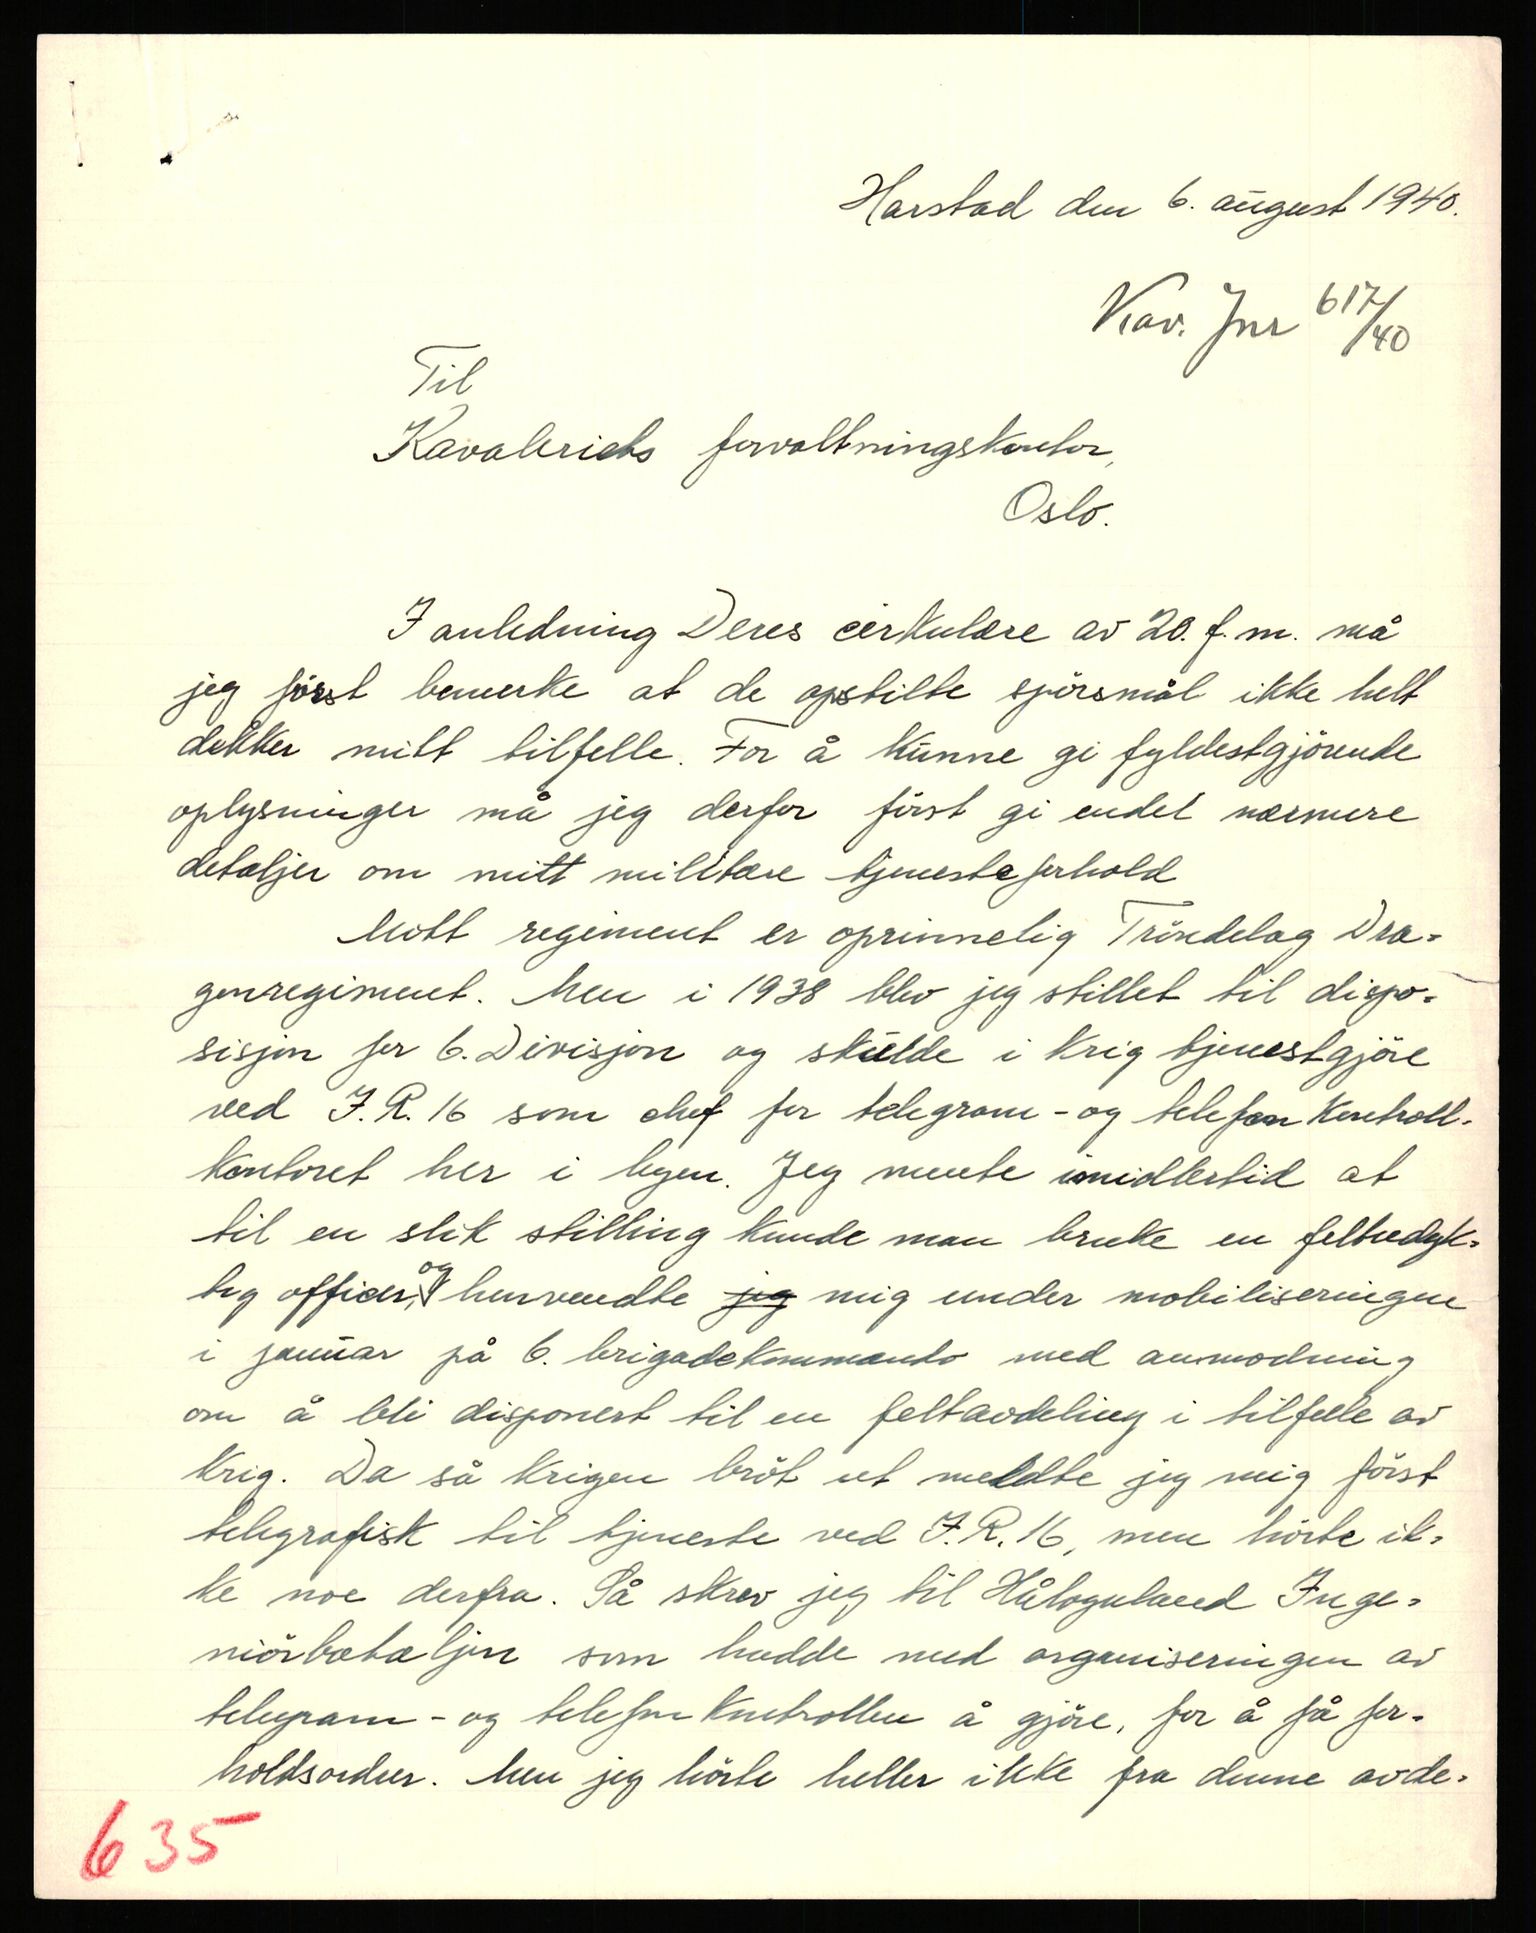 Harstad den 6. august 1940.
Kav. Jnr 617/40
Til
Kavaleriets forvaltningskontor,
Oslo.
I anledning Deres cirkulære av 20. f. m. må
jeg först bemerke at de opstilte spörsmål ikke helt
dekker mitt tilfelle. For å kunne gi fyldestgjörende
oplysninger må jeg derfor först gi endel nærmere
detaljer om mitt militære tjenesteforhold
Mitt regiment er oprinnelig Tröndelag Dra-
gonregiment. Men i 1938 blev jeg stillet til dispo-
sisjon for 6. Divisjon og skulde i krig tjenestgjöre
ved I.R. 16 som chef for telegram- og telefonkontroll-
kontoret her i byen. Jeg mente imidlertid at
til en slik stilling kunde man bruke en feltudyk-
tig officer, og henvendte jeg mig under mobiliseringen
i januar på 6. brigadekommando med anmodning
om å bli disponert til en feltavdeling i tilfelle av
krig. Da så krigen bröt ut meldte jeg mig först
telegrafisk til tjeneste ved I.R. 16, men hörte ik-
ke noe derfra. Så skrev jeg til Hålogaland Inge-
niörbataljon som hadde med organiseringen av
telegram- og telefonkontrollen å gjöre, for å få for-
holdsordrer. Men jeg hörte heller ikke fra denne avde-
635